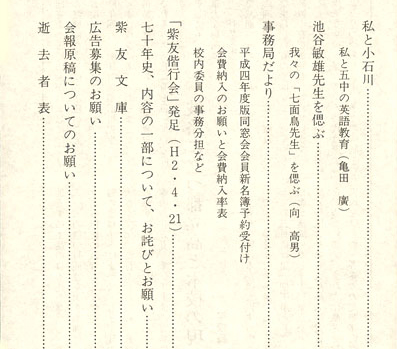 私と小石川…………………
私と五中の英語教育(亀田 廣)
池谷敏雄先生を偲ぶ…………………
我々の「七面鳥先生」を偲ぶ(向 高男)
事務局だより…………………
平成四年度版同窓会会員新名簿予約受付け
会費納入のお願いと会費納入率表
校内委員の事務分担など
「紫友偕行会」発足(H2・4・21)…………………
七十年史、内容の一部について、お詫びとお願い…………………
紫友文庫…………………
広告募集のお願い…………………
会報原稿についてのお願い…………………
逝去者表…………………